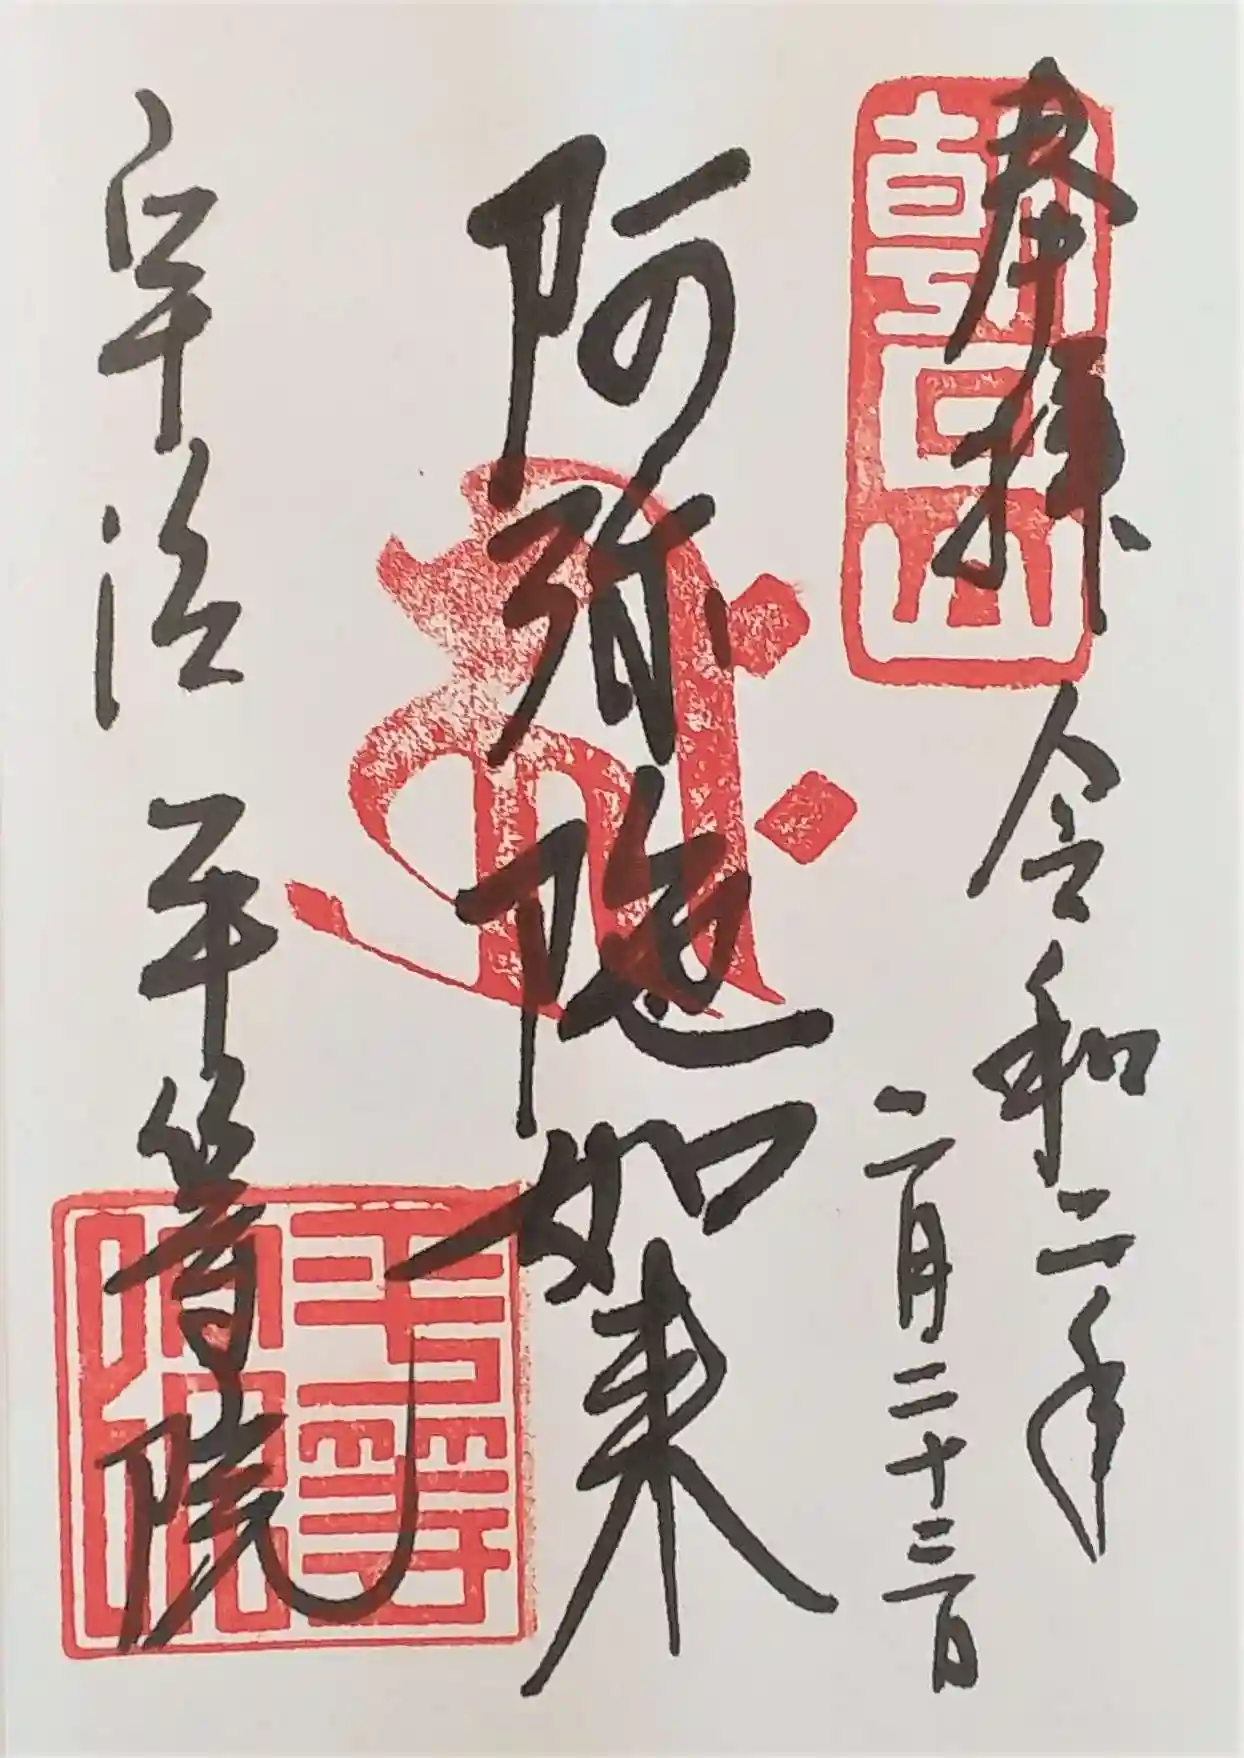 奉拝
令和二年
二月二十三日
阿弥陀如来
宇治 平等院
朝日山
平等院